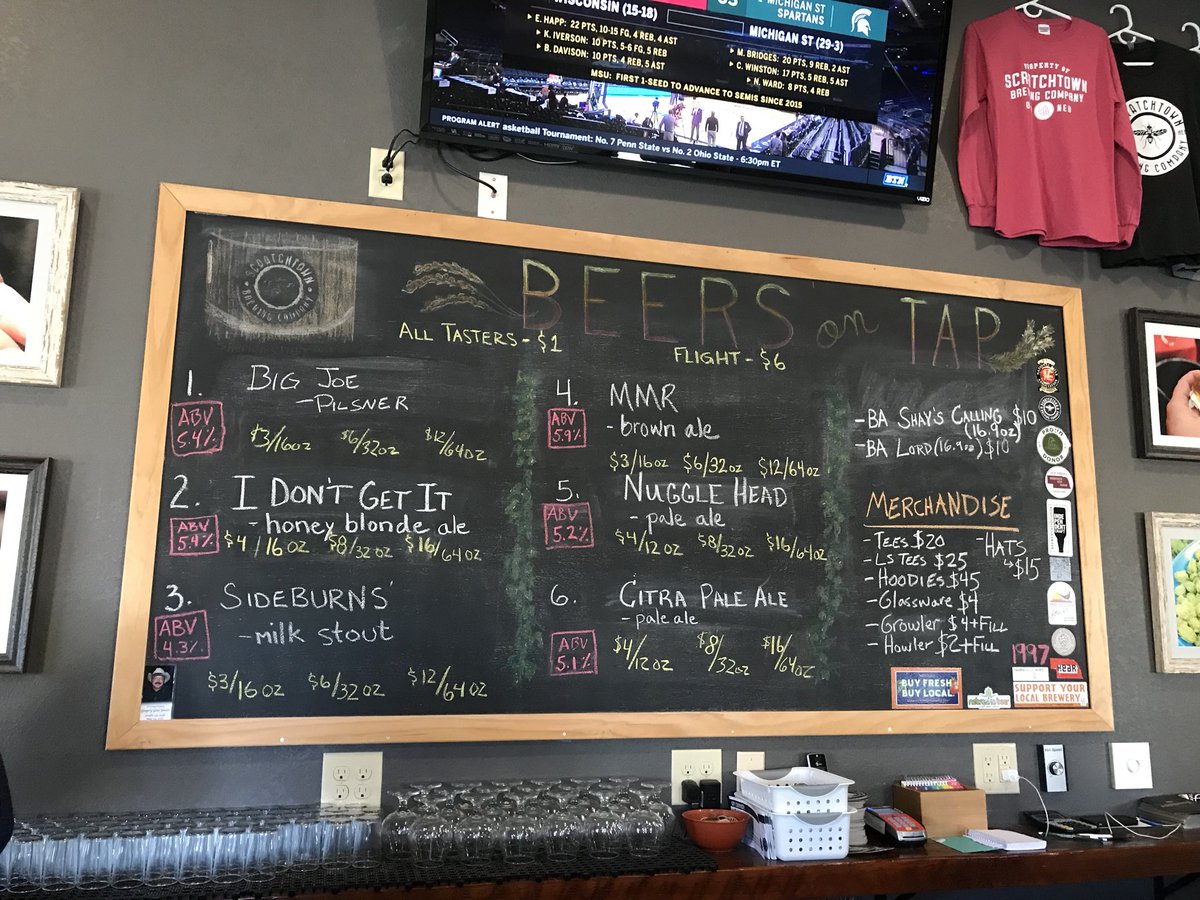 WISCONSIN (15-18)
E. HAPP: 22 PTS, 10-15 FG, 4 REB, 4 AST
K. IVERSON: 10 PTS, 5-6 FG, 5 REB
B. DAVISON: 10 PTS, 4 REB, 5 AST
MICHIGAN ST
SPARTANS
MICHIGAN ST (29-3)
M. BRIDGES: 20 PTS, 9 REB, 2 AST
C. WINSTON: 17 PTS, 5 REB, 5 AST
N. WARD: 8 PTS, 4 REB
MSU: FIRST 1-SEED TO ADVANCE TO SEMIS SINCE 2015
PROGRAM ALERT asketball Tournament: No. 7 Penn State vs No. 2 Ohio State - 6:30pm ET
BTN
VIZIO
PROPERTY OF
SCRATCHTOWN
BREWING COMPANY
NEB
SCRATCHTOWN
BREWING COMPANY
BEERS on TAP
ALL TASTERS - $1
FLIGHT - $6
1. BIG JOE
- PILSNER
ABV
5.4%
$3/16oz $6/32oz $12/64oz
2. I DON'T GET IT
- honey blonde ale
ABV
5.4%
$4/16oz $8/32oz $16/64oz
3. SIDEBURNS'
- milk stout
ABV
4.3%
$3/16oz $6/32oz $12/64oz
4. MMR
- brown ale
ABV
5.9%
$3/16oz $6/32oz $12/64oz
5. NUGGLE HEAD
- pale ale
ABV
5.2%
$4/12oz $8/32oz $16/64oz
6. CITRA PALE ALE
- pale ale
ABV
5.1%
$4/12oz $8/32oz $16/64oz
- BA SHAY'S CALLING $10
(16.9oz)
- BA LORD (16.9oz) $10
MERCHANDISE
- TEES $20
- LS TEES $25
- HOODIES $45
- Glassware $4
- Growler $4+FILL
- Howler $2+FILL
- HATS
$15
1997
HEAR
BUY FRESH
BUY LOCAL
SUPPORT YOUR
LOCAL BREWERY